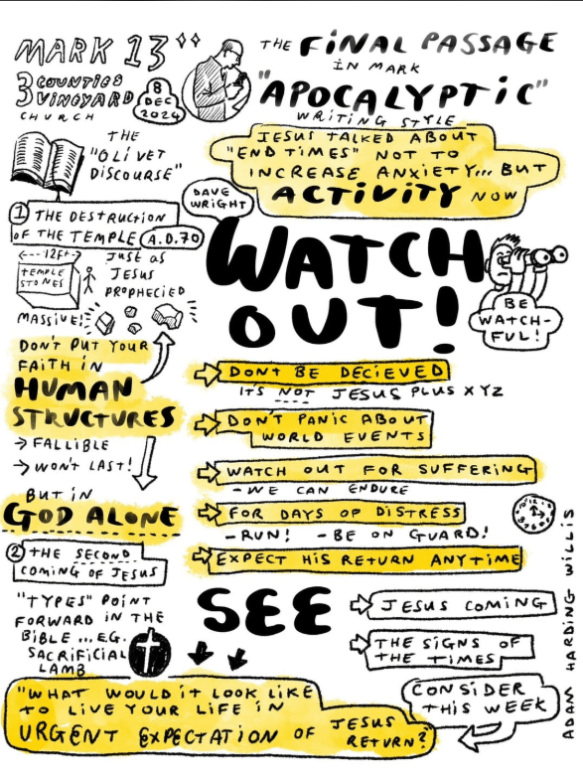 MARK 13
3 COUNTIES
VINEYARD
CHURCH
8
DEC
2024
THE FINAL PASSAGE
IN MARK
"APOCALYPTIC"
WRITING STYLE
JESUS TALKED ABOUT
"END TIMES" NOT TO
INCREASE ANXIETY... BUT
ACTIVITY NOW
THE
"OLIVET
DISCOURSE"
DAVE
WRIGHT
1 THE DESTRUCTION
OF THE TEMPLE A.D.70
<--- 12FT -->
TEMPLE
STONES
MASSIVE!
JUST AS
JESUS
PROPHECIED
WATCH
OUT!
BE
WATCH-
FUL!
DON'T PUT YOUR
FAITH IN
HUMAN
STRUCTURES
→ FALLIBLE
→ WON'T LAST!
BUT IN
GOD ALONE
DONT BE DECIEVED
IT'S NOT JESUS PLUS XYZ
DON'T PANIC ABOUT
WORLD EVENTS
WATCH OUT FOR SUFFERING
- WE CAN ENDURE
FOR DAYS OF DISTRESS
- RUN! - BE ON GUARD!
EXPECT HIS RETURN ANYTIME
2 THE SECOND
COMING OF JESUS
"TYPES" POINT
FORWARD IN THE
BIBLE ... E.G.
SACRIFICIAL
LAMB
SEE
JESUS COMING
THE SIGNS OF
THE TIMES
CONSIDER
THIS WEEK
"WHAT WOULD IT LOOK LIKE
TO LIVE YOUR LIFE IN
URGENT EXPECTATION OF JESUS
RETURN?
ADAM HARDING WILLIS